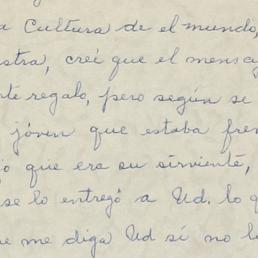 a Cultura de el mundo,
stra, creí que el mensaj
te regalo, pero según se
jóven que estaba fren
jo que era su sirviente,
se lo entregó a Ud. lo q
e me diga Ud sí no l